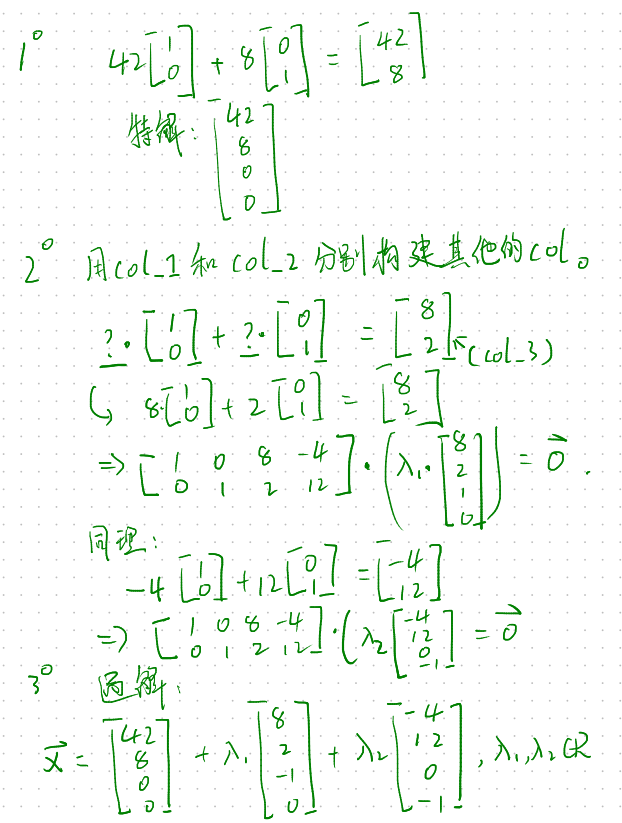 1° 42[1 0] + 8[0 1] = [42 8]
特解: [42 8 0 0]
2° 用col_1和col_2分别构建其他的col。
?·[1 0] + ?·[0 1] = [8 2] ↖(col_3)
↳ 8·[1 0] + 2[0 1] = [8 2]
=> [1 0 8 -4 0 1 2 12]·(λ₁·[8 2 1 0]) = 0⃗.
同理:
-4[1 0] + 12[0 1] = [-4 12]
=> [1 0 8 -4 0 1 2 12]·(λ₂[-4 12 0 -1] = 0⃗
3° 通解:
x⃗ = [42 8 0 0] + λ₁[8 2 -1 0] + λ₂[-4 12 0 -1], λ₁,λ₂∈R